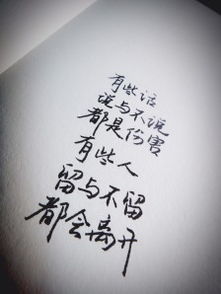 有些话
说与不说
都是伤害
有些人
留与不留
都会离开